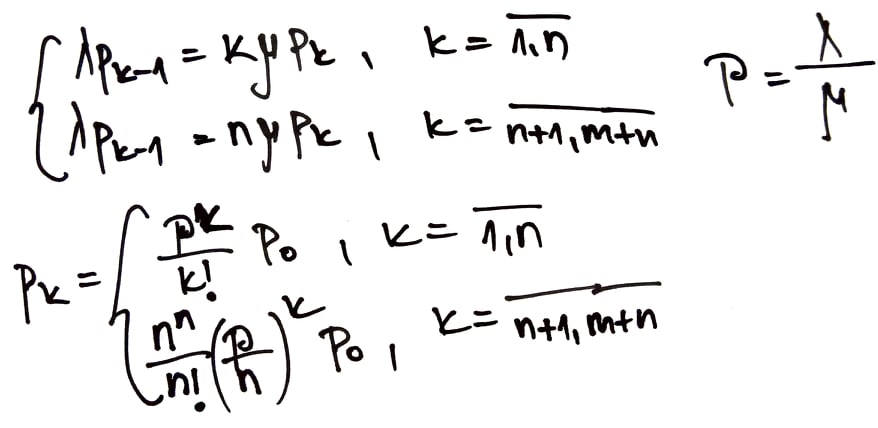 λp_{k-1} = kμp_k, k = \overline{1,n}
λp_{k-1} = nμp_k, k = \overline{n+1,m+n}
ρ = \frac{λ}{μ}
p_k = { \frac{ρ^k}{k!} p_0, k = \overline{1,n}
\frac{n^n}{n!} (\frac{ρ}{n})^k p_0, k = \overline{n+1,m+n}